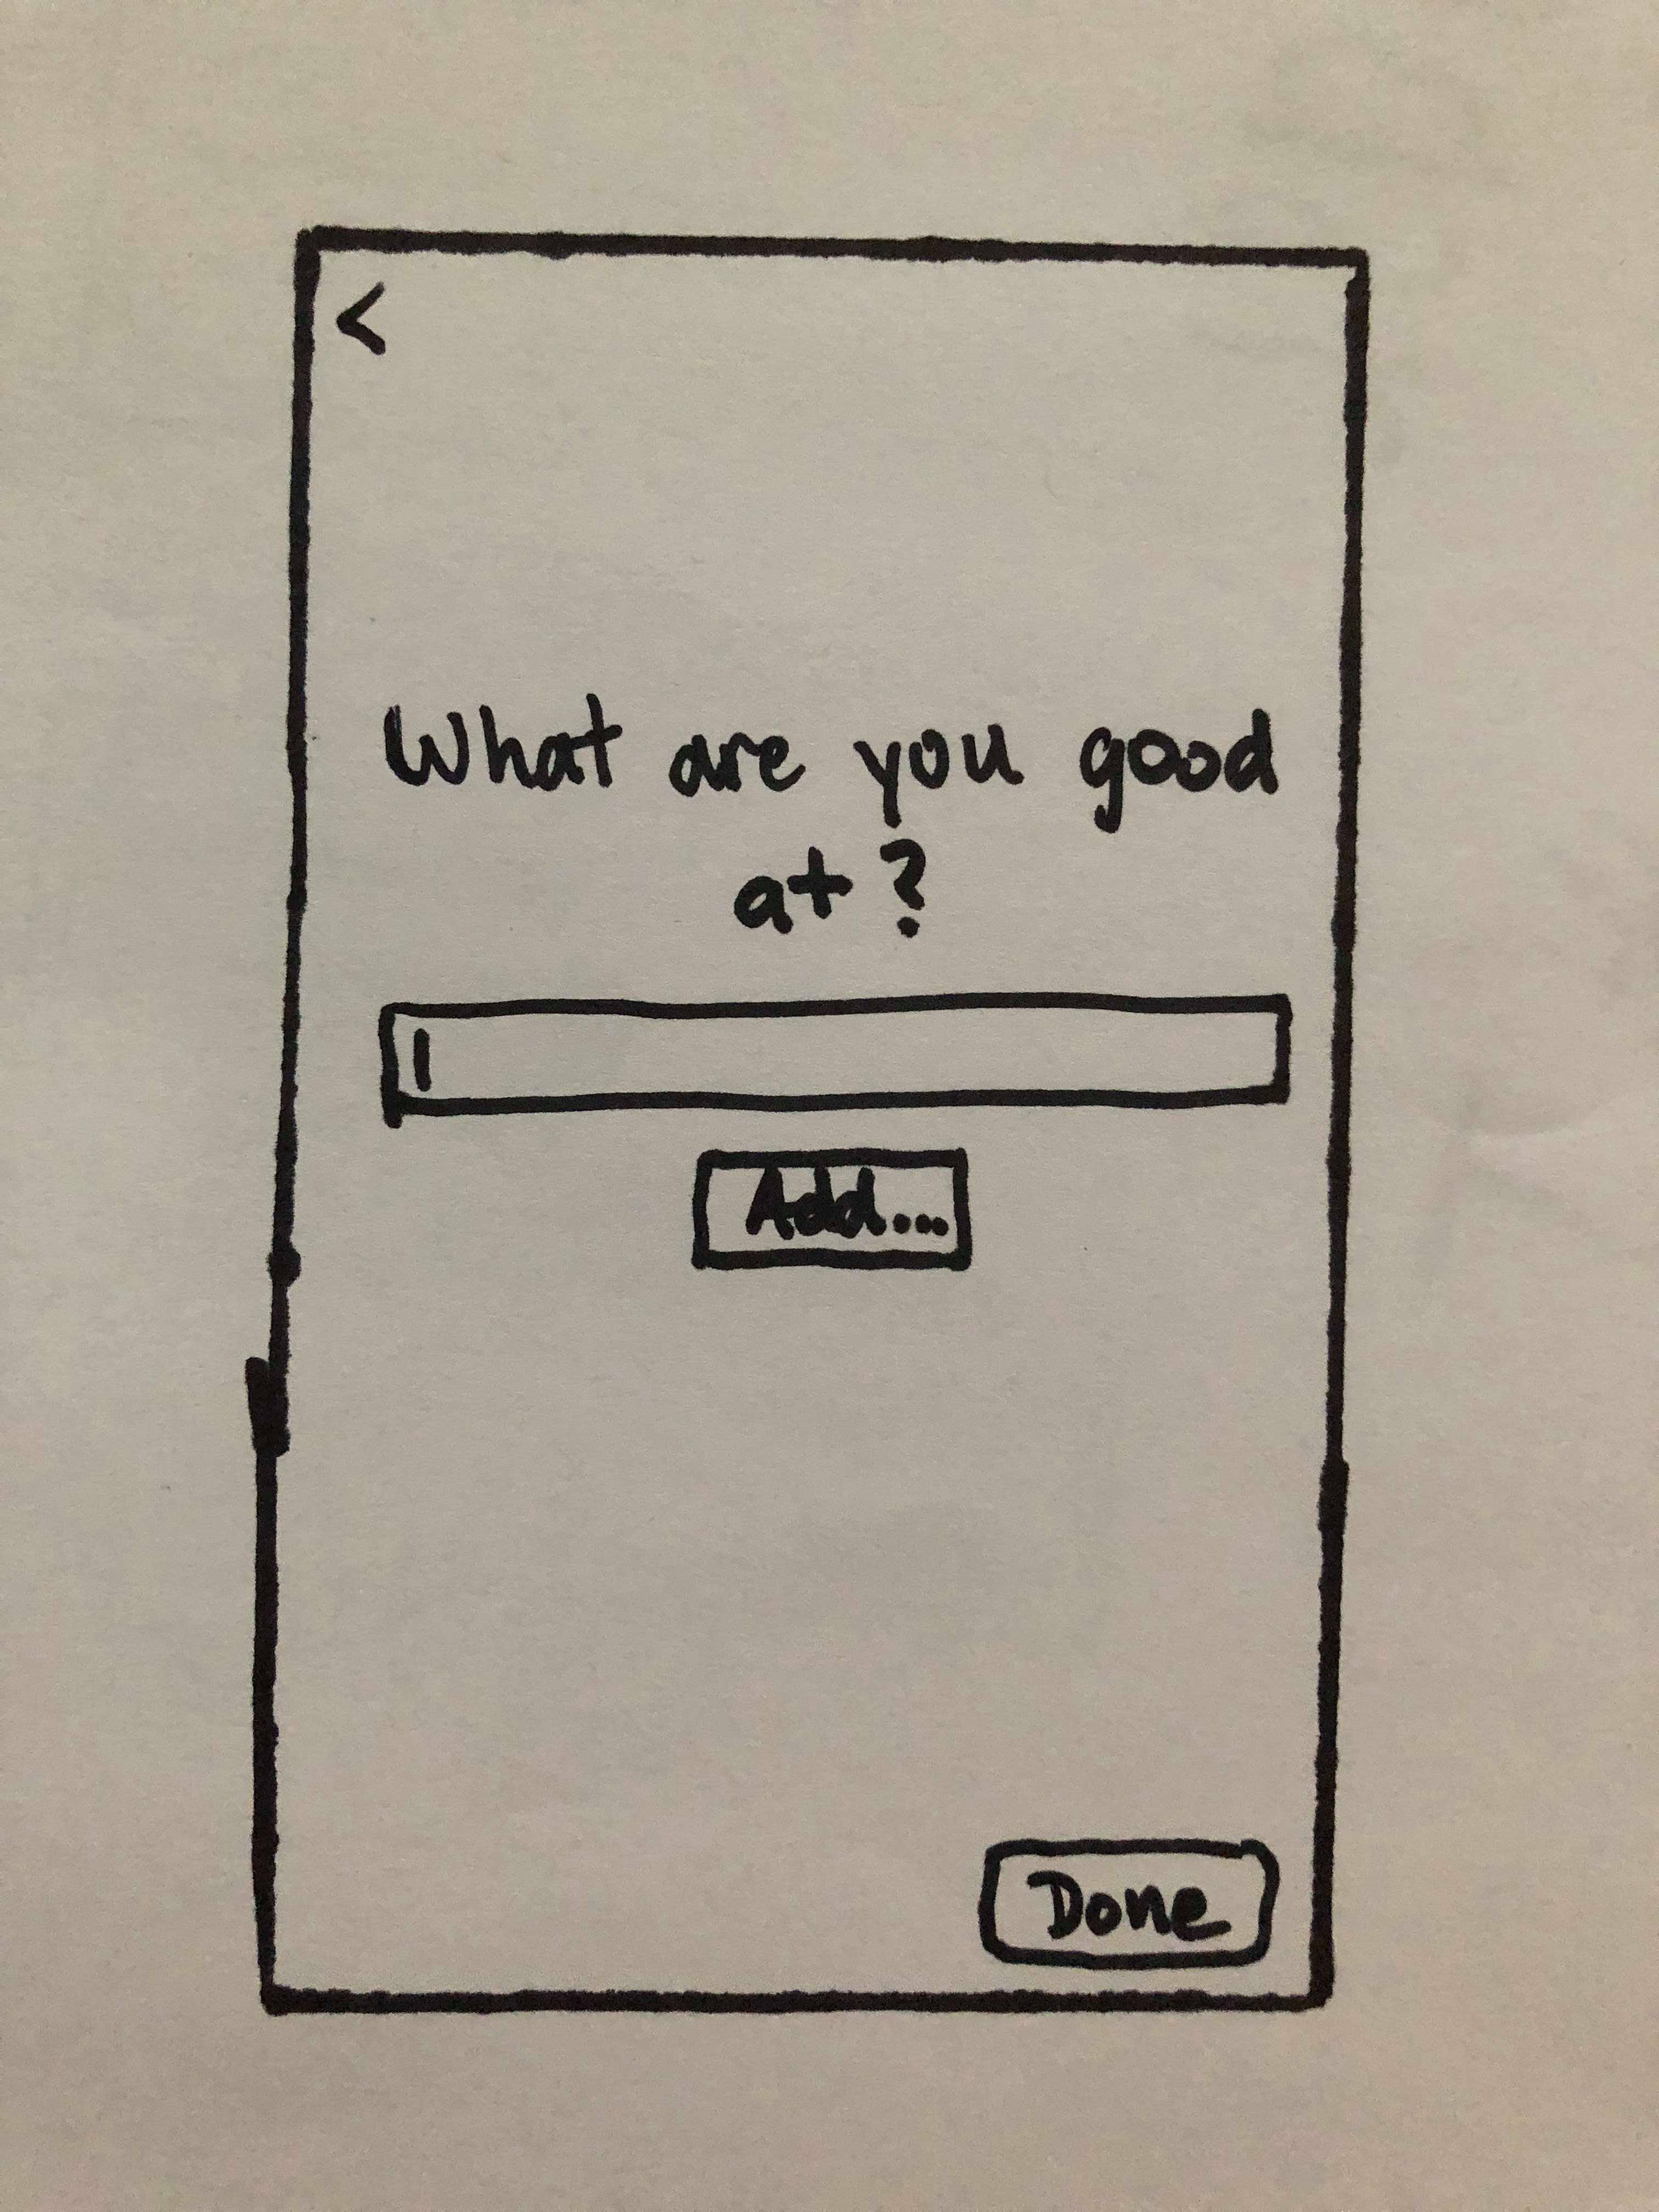 <
What are you good
at ?
Add...
Done